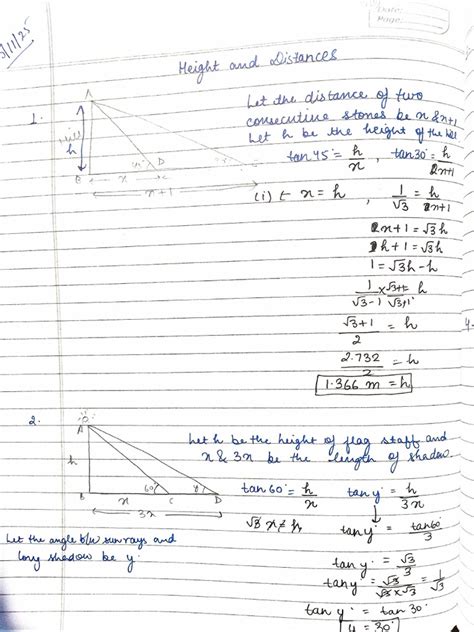 Date:
Page:
5/11/25
Height and Distances
1.
Let the distance of two
consecutive stones be x & x+1
Let h be the height of the hill
tan 45° = h/x , tan 30° = h/x+1
(i) x = h , 1/√3 = h/x+1
x+1 = √3h
h+1 = √3h
1 = √3h-h
1/√3-1 × √3+1/√3+1 = h
√3+1/2 = h
2.732/2 = h
1.366 m = h
A
Hill
h
B
x
C
D
45°
x+1
4.
2.
Let h be the height of flag staff and
x & 3x be the length of shadow.
A
h
B
x
C
D
60°
y
3x
tan 60° = h/x tan y° = h/3x
√3 x = h
tan y° = tan 60°/3
Let the angle b/w sunrays and
long shadow be y°
tan y° = √3/3
tan y° = √3/√3×√3 = 1/√3
tan y° = tan 30°
y = 30°